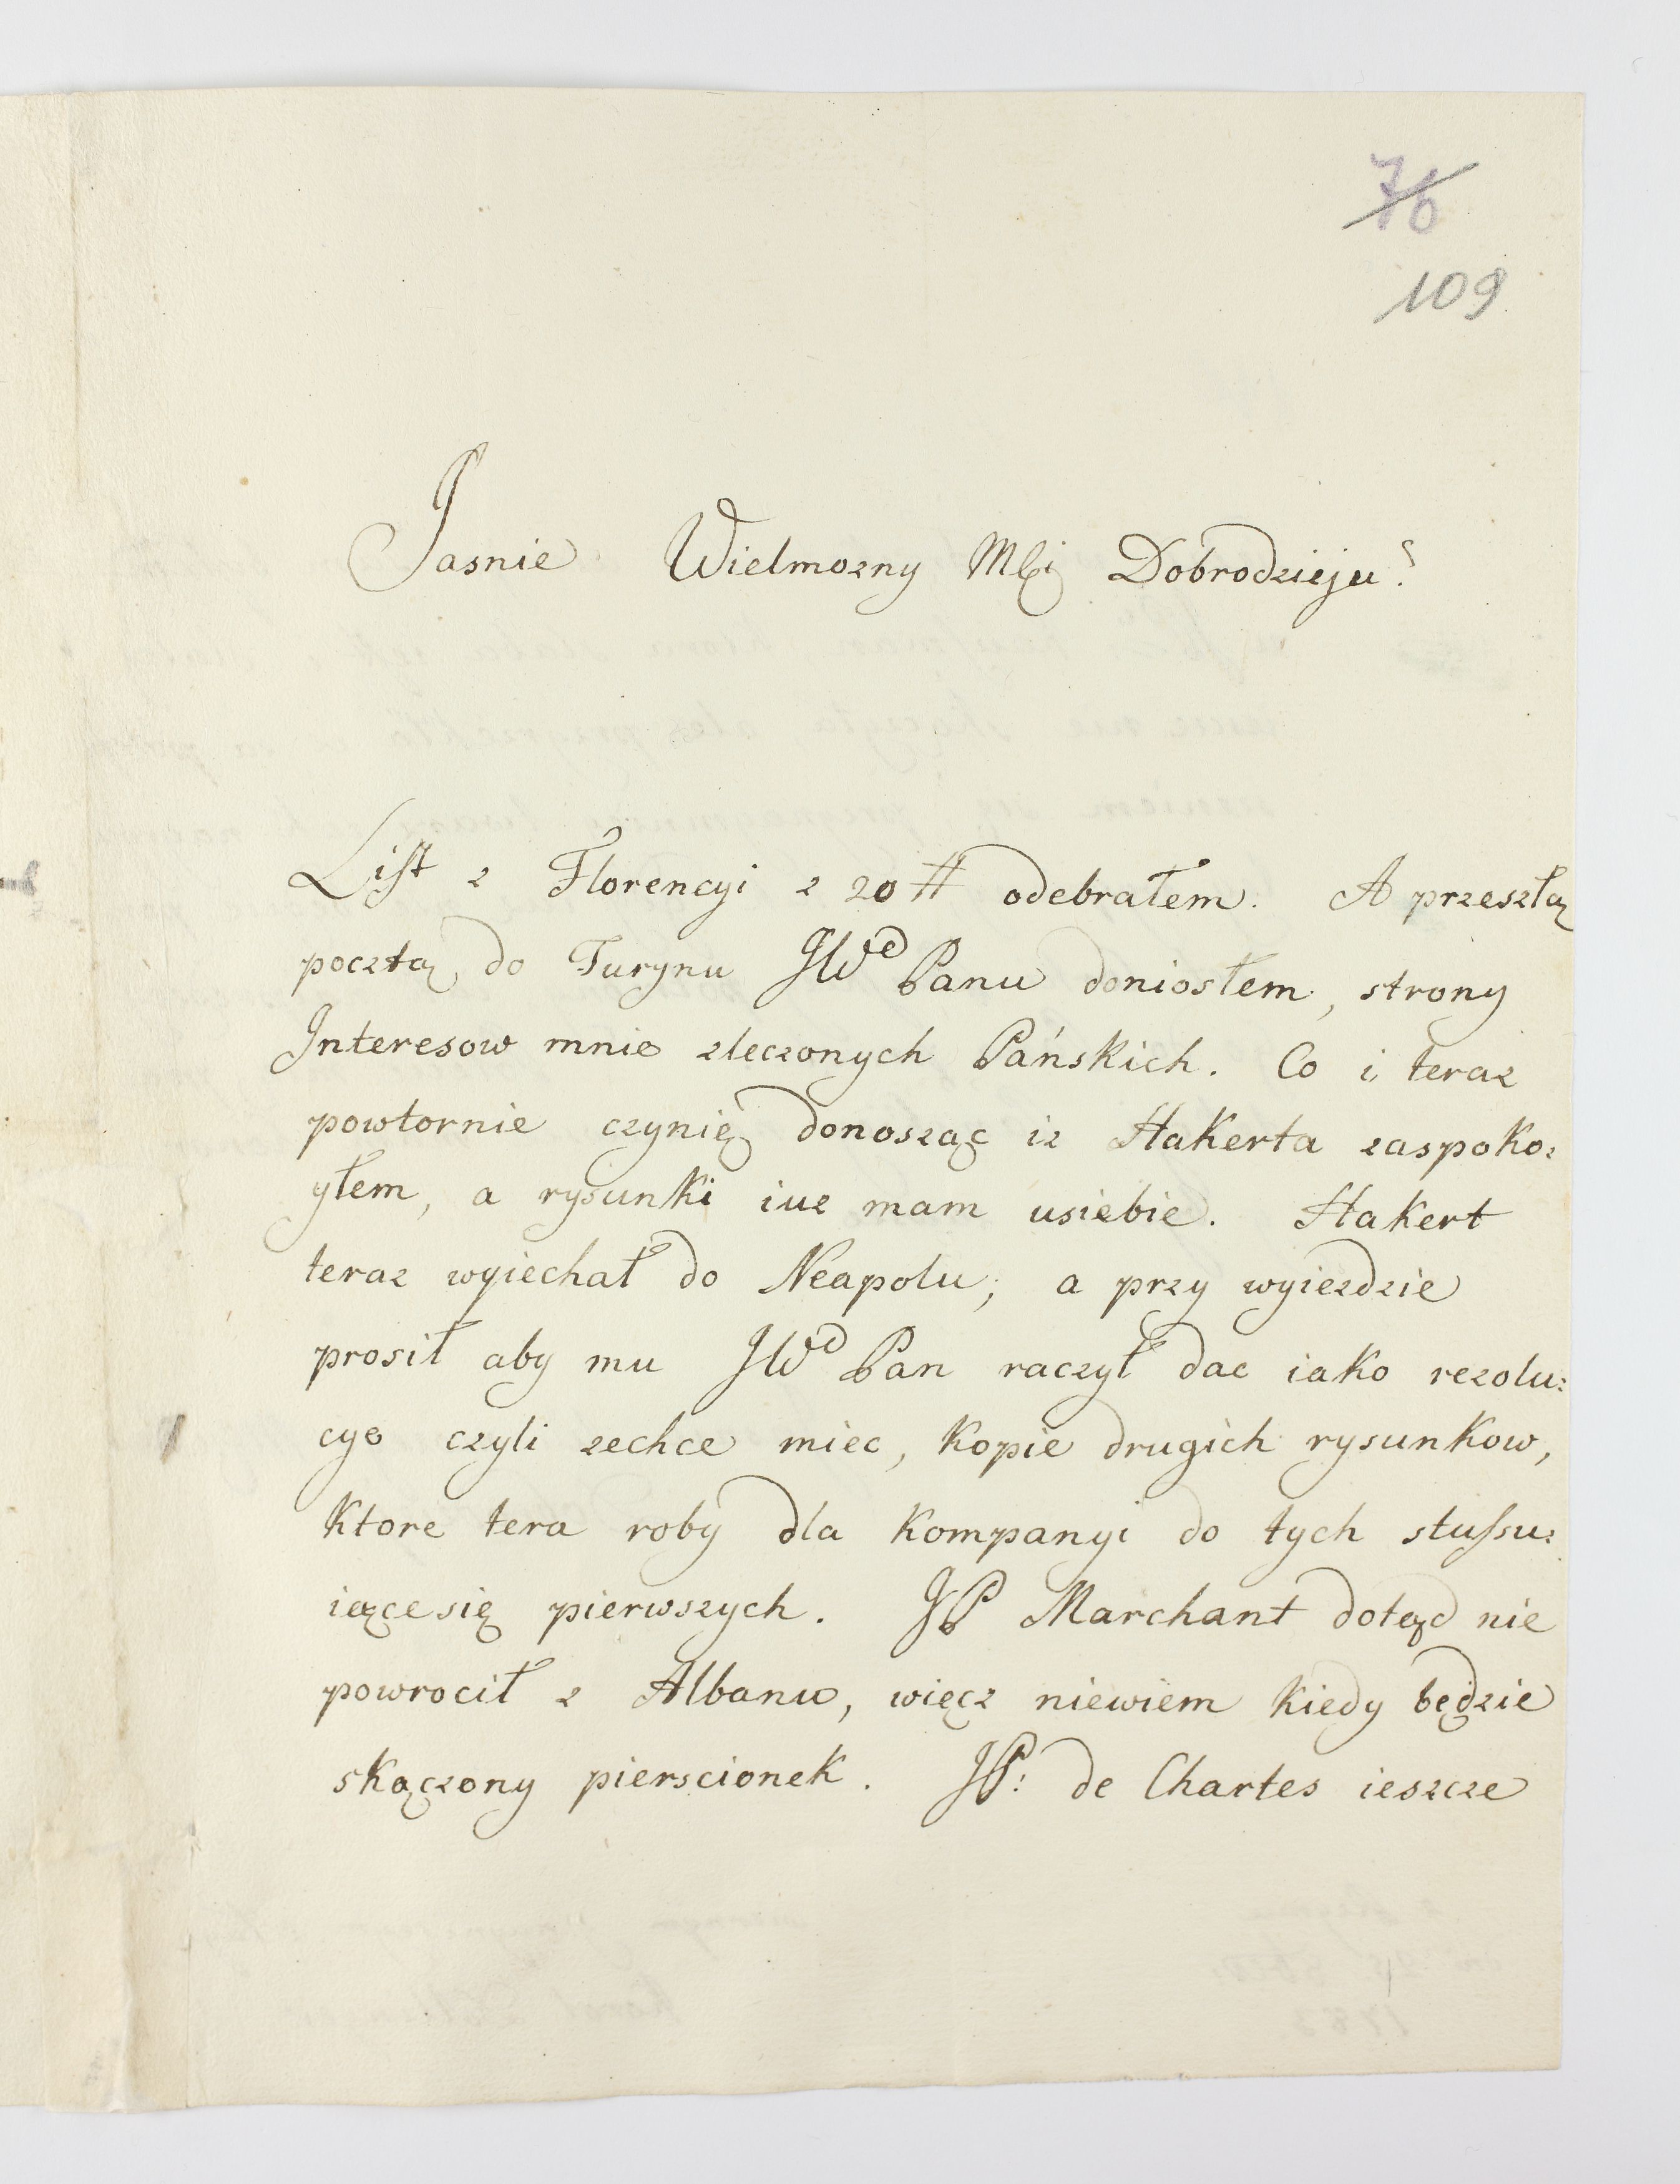 76
109
Jasnie Wielmozny Mći Dobrodzieju!
List z Florencyi z 20 # odebrałem. A przeszłą
pocztą do Turynu JWd Panu doniosłem, strony
Interesow mnie zleczonych Pańskich. Co i teraz
powtornie czynię donosząc iz Hakerta zaspoko:
yłem, a rysunki iuz mam usiebie. Hakert
teraz wyiechał do Neapolu; a przy wyiezdzie
prosił aby mu JWd Pan raczył dac iako rezolu:
cye czyli zechce miec, kopie drugich rysunkow,
ktore tera roby dla kompanyi do tych stussu:
iączesię pierwszych. JP Marchant dotąd nie
powrocił z Albanu, więcz niewiem kiedy będzie
skączony pierscionek. JP: de Chartes ieszcze